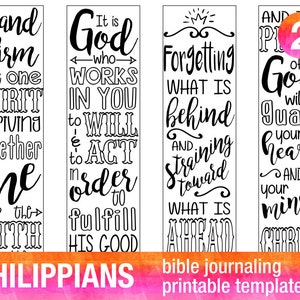 and
firm
one
SPIRIT
striving
together
one
the
FAITH
It is
God
who
WORKS
IN YOU
to WILL
& to ACT
in
order
to
fulfill
HIS GOOD
Forgetting
WHAT IS
behind
AND
straining
toward
WHAT IS
AHEAD
AND
of
God
will
guard
your
hearts
AND
your
minds
CHRIST
2
PHILIPPIANS
bible journaling
printable template